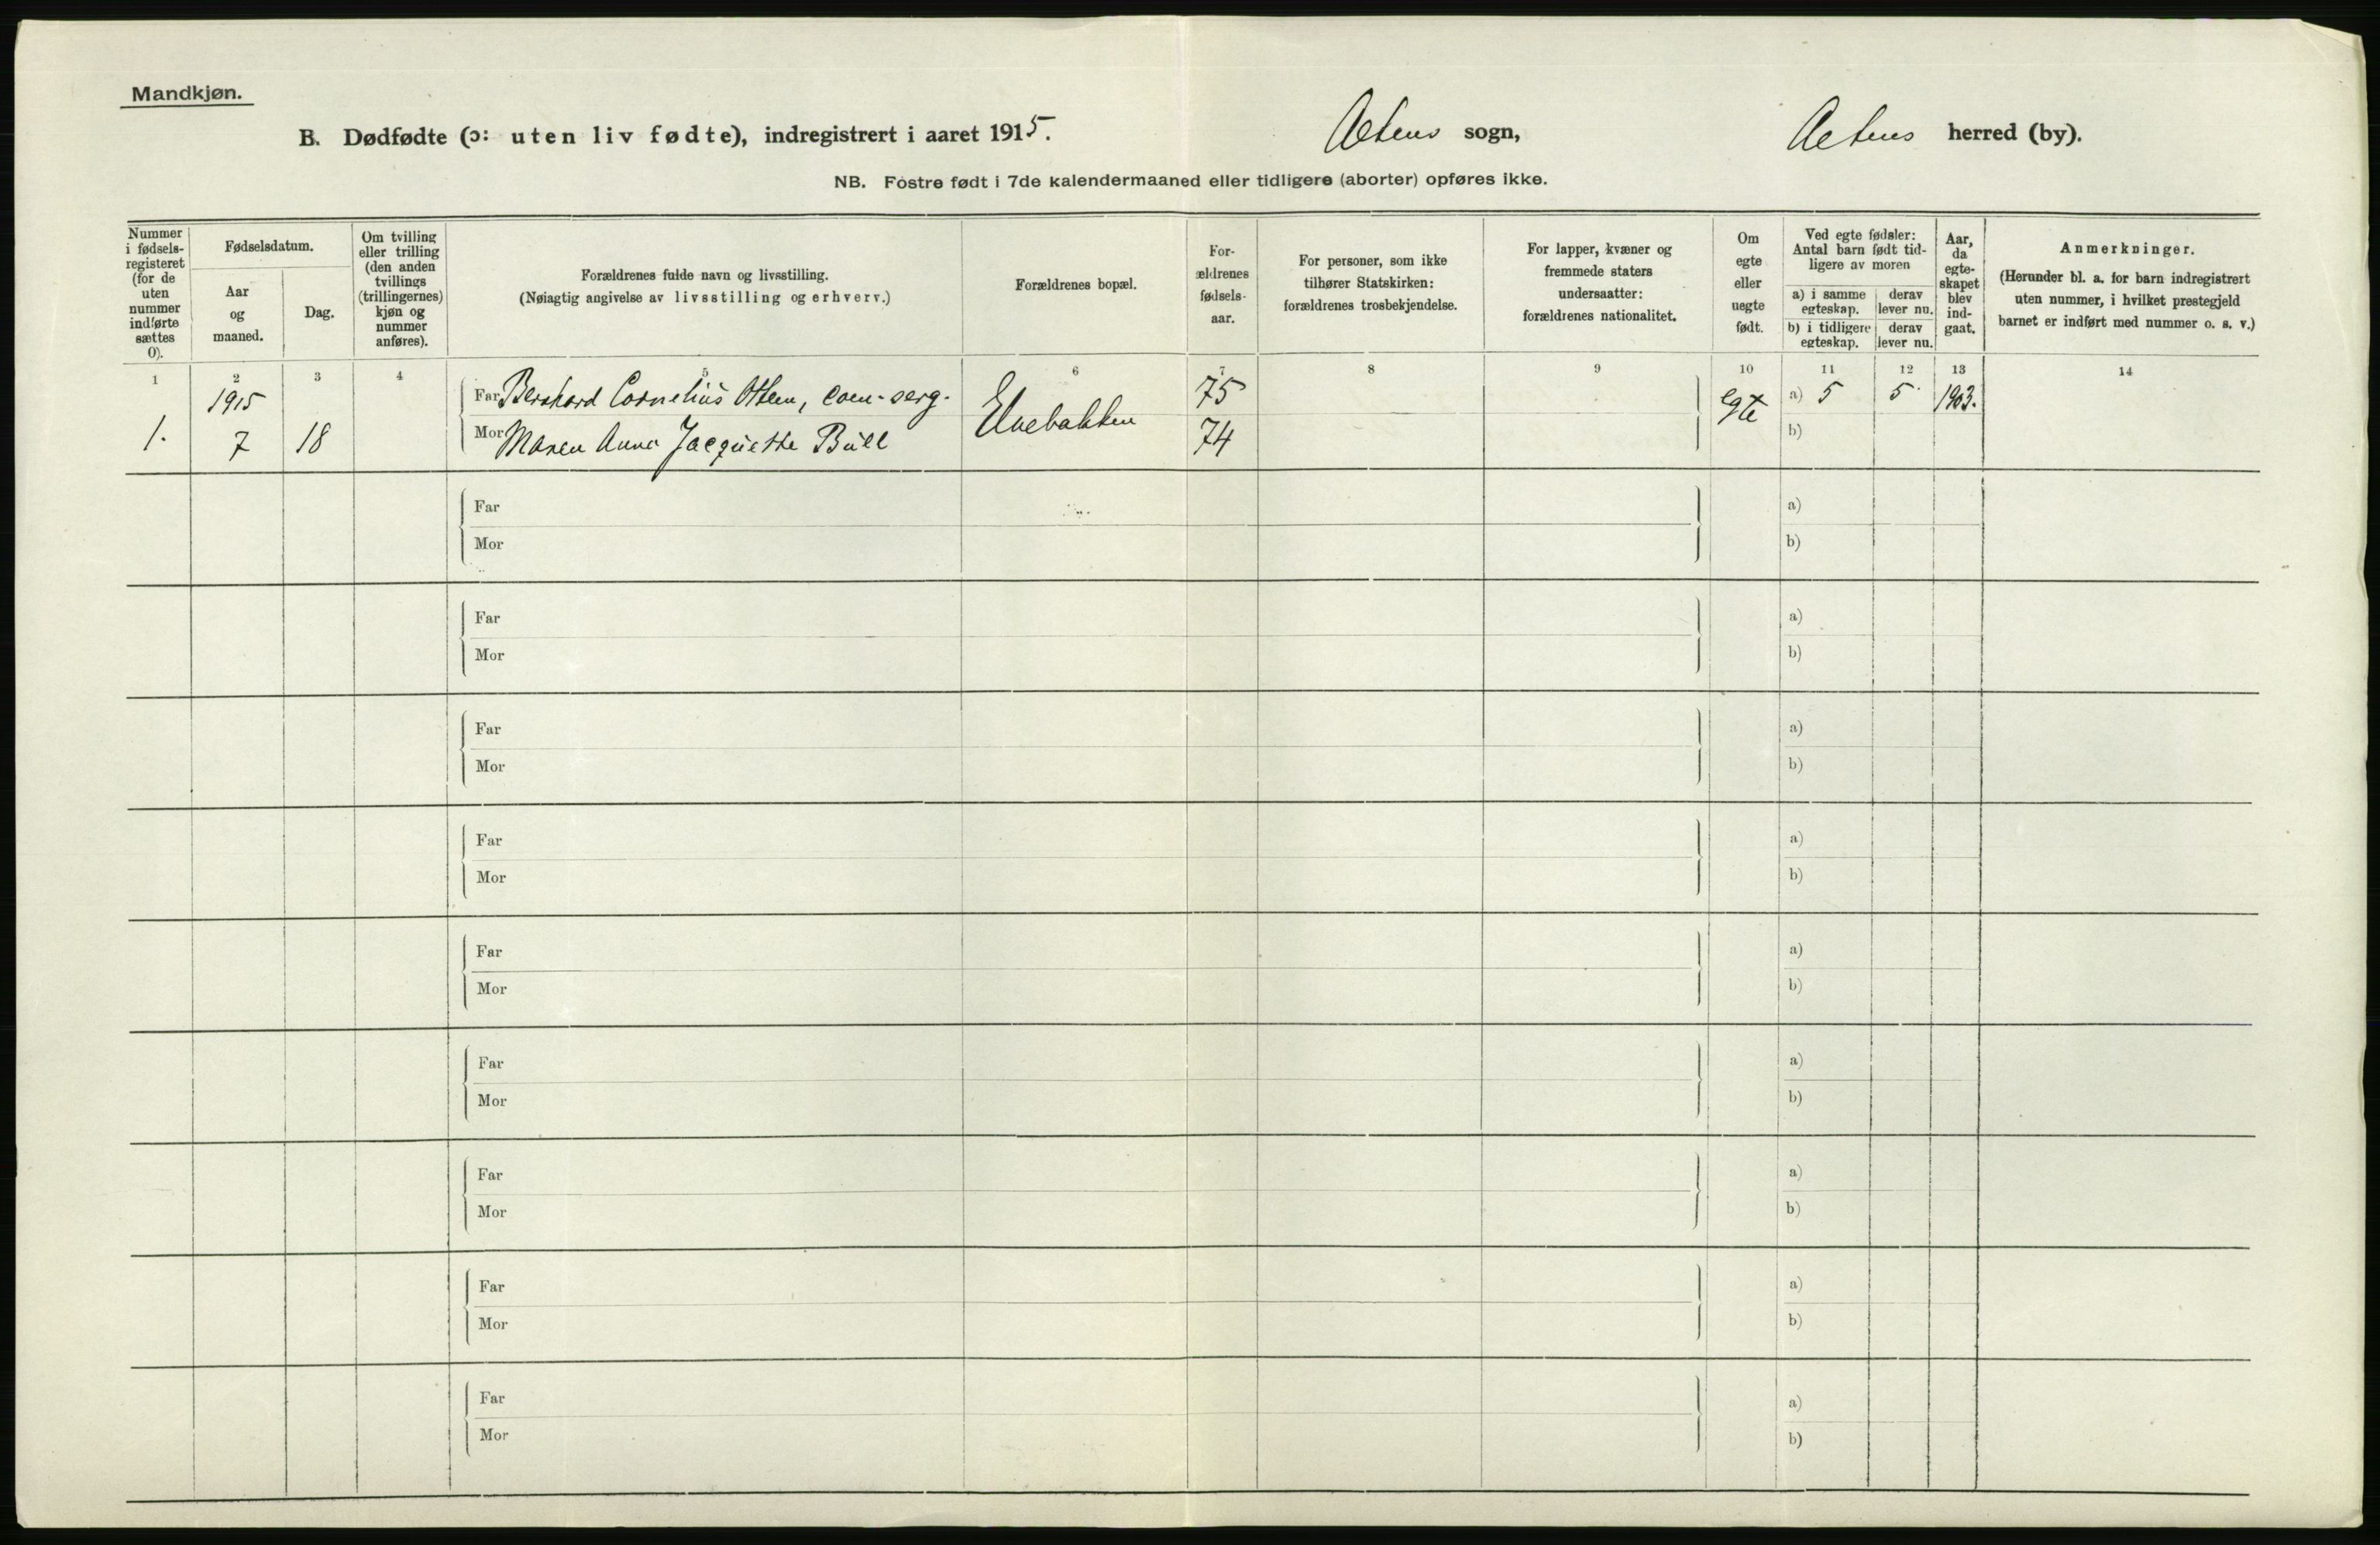 Mandkjøn.
B. Dødfødte (ɔ: uten liv fødte), indregistrert i aaret 1915. Altens sogn, Altens herred (by).
NB. Fostre født i 7de kalendermaaned eller tidligere (aborter) opføres ikke.
Nummer
i fødsels-
registeret
(for de
uten
nummer
indførte
sættes
0).
Fødselsdatum.
Aar
og
maaned.
Dag.
Om tvilling
eller trilling
(den anden
tvillings
(trillingernes)
kjøn og
nummer
anføres).
Forældrenes fulde navn og livsstilling.
(Nøiagtig angivelse av livsstilling og erhverv.)
Forældrenes bopæl.
For-
ældrenes
fødsels-
aar.
For personer, som ikke
tilhører Statskirken:
forældrenes trosbekjendelse.
For lapper, kvæner og
fremmede staters
undersaatter:
forældrenes nationalitet.
Om
egte
eller
uegte
født.
Ved egte fødsler:
Antal barn født tid-
ligere av moren
a) i samme
egteskap.
derav
lever nu.
b) i tidligere
egteskap.
derav
lever nu.
Aar,
da
egte-
skapet
blev
ind-
gaat.
Anmerkninger.
(Herunder bl. a. for barn indregistrert
uten nummer, i hvilket prestegjeld
barnet er indført med nummer o. s. v.)
1 2 3 4 5 6 7 8 9 10 11 12 13 14
1915 Far Bernhard Cornelius Ottem, com-serg. Elvebakken 75 egte a) 5 5 1903.
1. 7 18 Mor Maren Anna Jacquette Bull 74 b)
Far a)
Mor b)
Far a)
Mor b)
Far a)
Mor b)
Far a)
Mor b)
Far a)
Mor b)
Far a)
Mor b)
Far a)
Mor b)
Far a)
Mor b)
Far a)
Mor b)